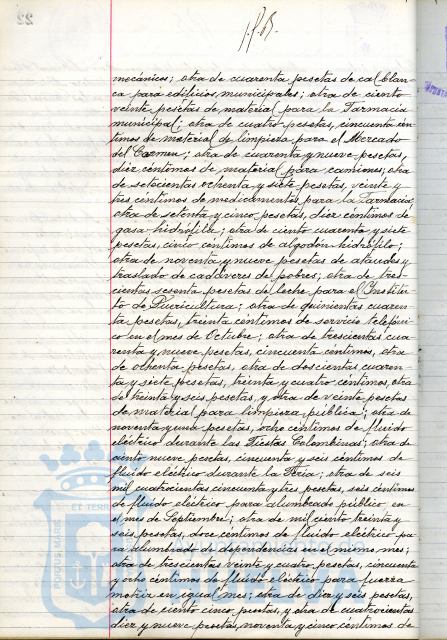 mecánicos; otra de cuarenta pesetas de cal blan-
ca para edificios municipales; otra de ciento
veinte pesetas de material para la Farmacia
municipal; otra de cuatro pesetas, cincuenta cén-
timos de material de limpieza para el Mercado
del Carmen; otra de cuarenta y nueve pesetas,
diez céntimos de material para camiones; otra
de setecientas ochenta y siete pesetas, veinte y
tres céntimos de medicamentos para la Farmacia;
otra de setenta y cinco pesetas, diez céntimos de
gasa hidrófila; otra de ciento cuarenta y siete
pesetas, cinco céntimos de algodón hidrófilo;
otra de noventa y nueve pesetas de ataudes y
traslado de cadáveres de pobres; otra de tres-
cientas sesenta pesetas de leche para el Institu-
to de Puericultura; otra de quinientas cuaren-
ta pesetas, treinta céntimos de servicio telefóni-
co en el mes de Octubre; otra de trescientas cua-
renta y nueve pesetas, cincuenta céntimos, otra
de ochenta pesetas, otra de doscientas cuaren-
ta y siete pesetas, treinta y cuatro céntimos, otra
de treinta y seis pesetas, y otra de veinte pesetas
de material para limpieza pública; otra de
noventa y una pesetas, ocho céntimos de fluido
eléctrico durante las Fiestas Colombinas; otra de
ciento nueve pesetas, cincuenta y seis céntimos de
fluido eléctrico durante la Feria; otra de seis
mil cuatrocientas cincuenta y tres pesetas, seis céntimos
de fluido eléctrico para alumbrado público en
el mes de Septiembre; otra de mil ciento treinta y
seis pesetas, doce céntimos de fluido eléctrico pa-
ra alumbrado de dependencias en el mismo mes;
otra de trescientas veinte y cuatro pesetas, cincuenta
y ocho céntimos de fluido eléctrico para fuerza
motriz en igual mes; otra de diez y seis pesetas,
otra de ciento cinco pesetas, y otra de cuatrocientas
diez y nueve pesetas, noventa y cinco céntimos de
PORTUS MARIS ET TERRA
22